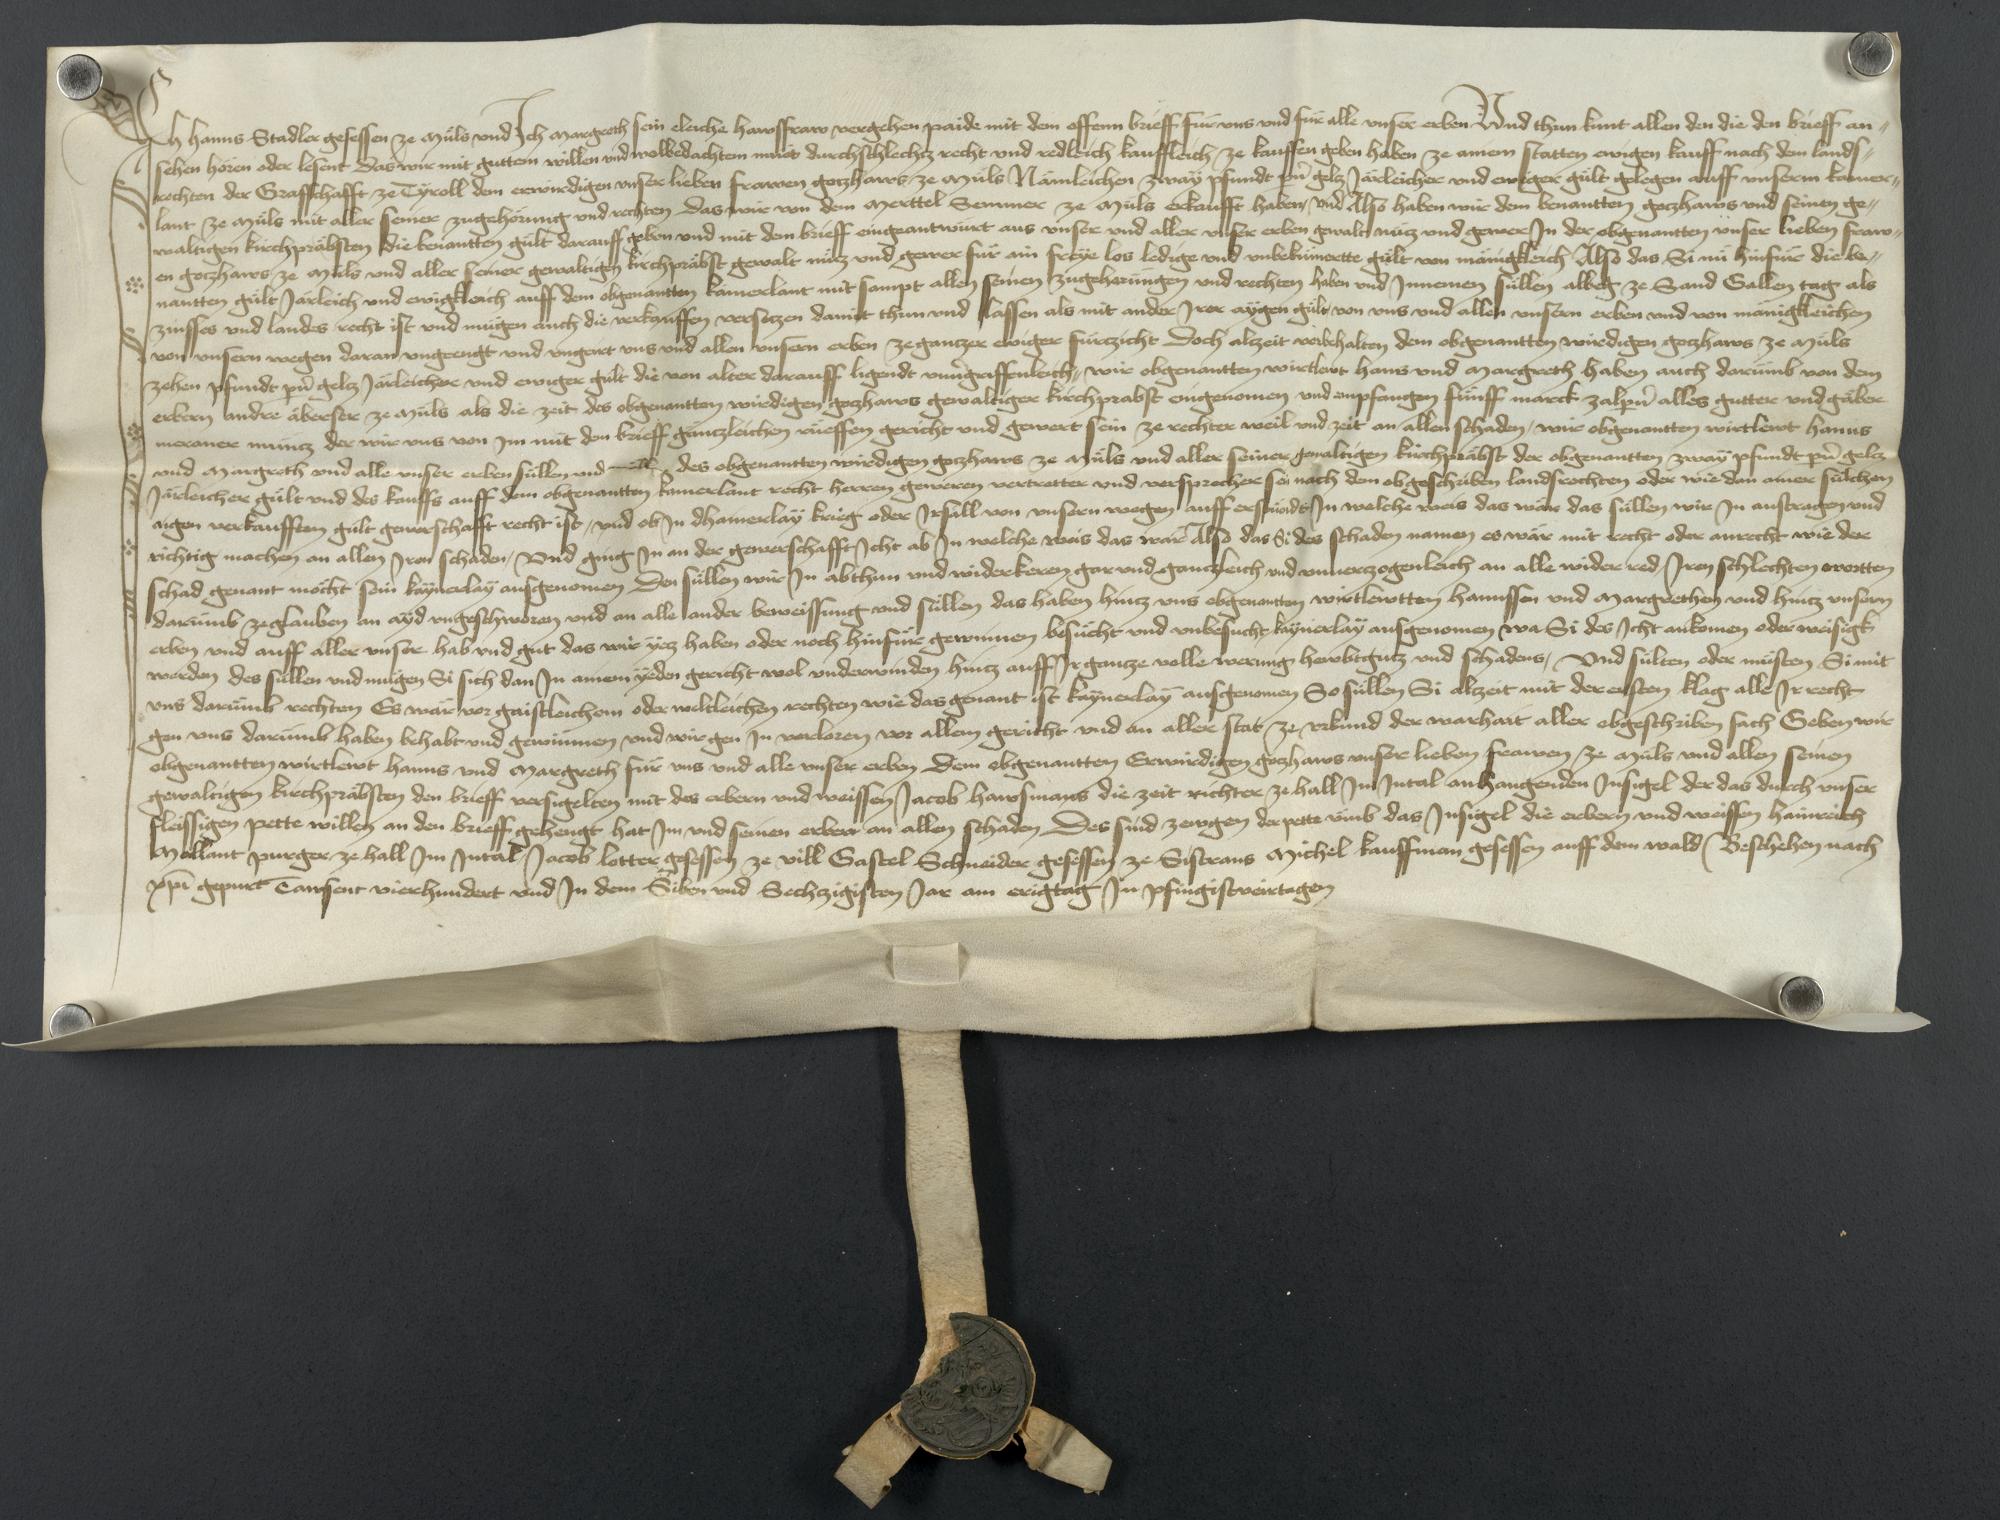 Ich Hanns Stadler gesessen ze Müls und Ich Margreth sein eleiche hawsfraw vergehen paide mit dem offenn brieff für uns und für alle unser erben Und thun kunt allen den die den brieff an⸗
sehen hören oder lesent Das wir mit guttem willen und wolbedachtem muet durchschlechtz recht und redleich kauffleich ze kauffen geben haben ze ainem statten ewigen kauff nach dem lands⸗
rechten der Graffschafft ze Tyroll dem erwirdigen unser lieben frawen gotzhaws ze Müls Nämleichen zwaÿ pfundt pn̄ geltz Järleicher und ewiger gült gelegen auff unserm kamer⸗
lant ze Müls mit aller seiner zugehörung und rechten Das wir von dem Merttel Semmer ze Müls erkaufft haben / und Also haben wir dem benantten gotzhaws und seinen ge⸗
waltigen kirchpräbsten die benantten gült darauff geben und mit dem brieff eingeantwurt aus unser und aller unser erben gewalt nutz und gewer In der obgenantten unser lieben fraw⸗
en gotzhaws ze Müls und aller seiner gewaltigen kirchpräbst gewalt nütz und gewer für ain freÿe los ledige und unbekümerte gült von mänigkleich Also das Si nü hinfür die be⸗
nantten gült Järleich und ewigkleich auff dem obgenantten kamerlant mit sampt allen seinen zugehorüngen und rechten haben und Innemen süllen albeg ze Sand Gallen tag als
zinsses und landes recht ist und mügen auch die verkauffen versetzen damit thun und lassen als mit ander Irer aÿgen gült von uns und allen unsern erben und von mänigkleichen
von unsern wegen daran ungeengt und ungeirt uns und allen unsern erben ze gantzer ewiger fürczicht Doch alczeit vorbehalten dem obgenantten wirdigen gotzhaws ze Müls
zehen pfundt pn̄ geltz Järleicher und ewiger gült die von alter darauff ligendt unvergriffenleich / wir obgenantten wirtlewt Hans und Margreth haben auch darümb von dem
erbern Andre Äberser ze Müls als die zeit des obgenantten wirdigen gotzhaws gewaltiger kirchprabst eingenomen und empfangen fünff marck zal pn̄ alles gutter und gäber
meraner müntz der wir uns von Im mit dem brieff gäntzleichen rüeffen gericht und gewert sein ze rechter weil und zeit an allen schaden / wir obgenantten wirtlewt Hanns
und Margreth und alle unser erben süllen und des obgenantten wirdigen gotzhaws ze Müls und aller seiner gewaltigen kirchpräbst der obgenantten zwaÿ pfundt pn̄ geltz
Järleicher gült und des kauffs auff dem obgenantten kamerlant recht herren geweren vertretter und versprecher sei nach dem obgeschriben landsrechten oder wie dan ainer sülchen
aigen verkaufften gült gewerschafft recht ist / und ob In dhainerlaÿ krieg oder Irsall von unsern wegen auff erstüendt In welche weis das wär das süllen wir In austragen und
richtig machen an allen Iren schaden / Und ging In an der gewerschafft Icht ab In welche weis das wär Also das Si des schaden namen es wär mit recht oder anrecht wie der
schad genant möcht sein kaÿnerlaÿ ausgenomen Den süllen wir In abthun und widerkeren gar und gantzleich und unverczogenleich an alle wider red Iren schlechten wortten
darümb ze glauben an aÿd ungeschworen und an alle ander beweissung und süllen das haben hintz uns obgenantten wirtlewtten Hannssen und Margrethen und hintz unsern
erben und auff aller unser hab und gut das wir ÿetz haben oder noch hinfür gewinnen besücht und unbesucht kaÿnerlaÿ ausgenomen wa Si des Icht ankomen oder weisigk
werden des süllen und mügen Si sich dan In ainem ÿeden gericht wol underwinden hintz auff Ir gantze volle werung hewbtgutz und schadens / Und sülten oder müsten Si mit
uns darümb rechten Es wär vor gaistleichem oder weltleichen rechten wie das genant ist kaÿnerlaÿ ausgenomen So süllen Si alczeit mit der ersten klag alle Ir recht
gen uns darümb haben behabt und gewinnen und wir gen In verloren vor allem gericht und an aller stat ze urkund der warhait aller obgeschriben sach Geben wir
obgenantten wirtlewt Hanns und Margreth für uns und alle unser erben Dem obgenantten Erwirdigen gotzhaws unser lieben frawen ze Müls und allen seinen
gewaltigen kirchpräbsten den brieff versigelten mit des erbern und weissen Jacob Hawsmans die zeit richter ze Hall Im Intal anhangenden Insigel der das durch unser
fleissigen pette willen an den brieff gehengt hat Im und seinen erben an allen schaden Des sind zewgen der pette umb das Insigel die erbern und weissen Hainreich
Mollant purger ze Hall Im Intal Jacob Lotter gesessen ze vill Gastel Schneider gesessen ze Sistrans Michel kauffman gesessen auff dem wald Beschehen nach
xp̄i gepurt Tawsent vierhundert und In dem Siben und Sechtzigisten Jar am erigtag In pfingistveirtagen